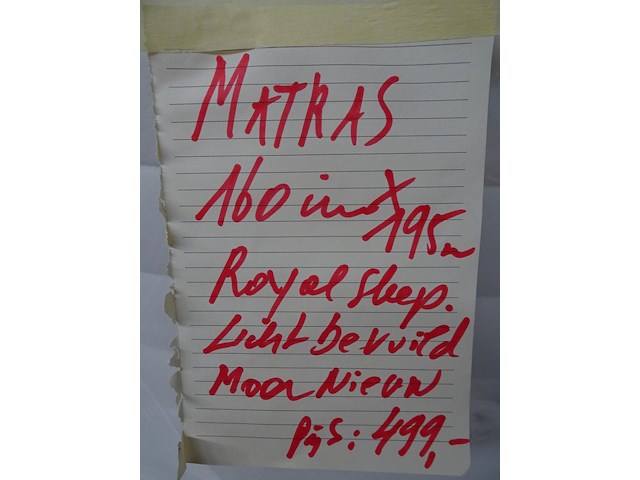 MATRAS
160 cm X 195 cm
Royal sleep.
Licht bevuild
Moar Nieuw
Pijs: 499,-